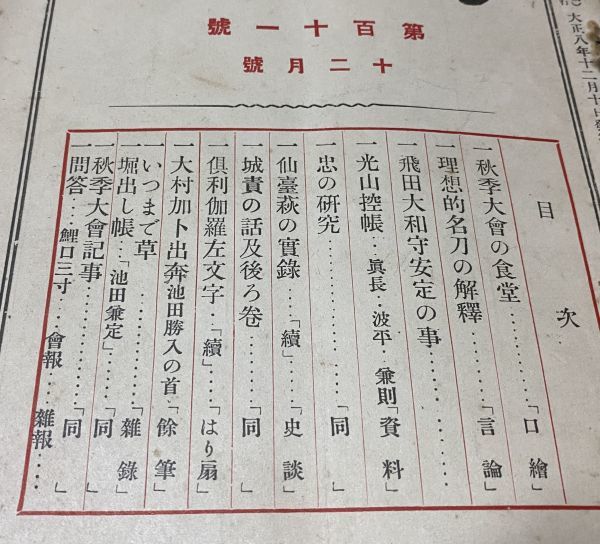 第百十一號
十二月號
大正八年十二月十日發
目次
一秋季大會の食堂…………「口繪」
一理想的名刀の解釋…………「言論」
一飛田大和守安定の事…………
一光山控帳…眞長・波平・兼則「資料」
一忠の研究…………「同」
一仙臺萩の實錄…「續」…「史談」
一城責の話及後ろ卷…………「同」
一俱利伽羅左文字・「續」…「はり扇」
一大村加卜出奔池田勝入の首「餘筆」
一いつまで草…………
一堀出し帳…「池田兼定」…「雜錄」
一秋季大會記事…………「同」
一問答…鯉口三寸…會報…雜報…「同」